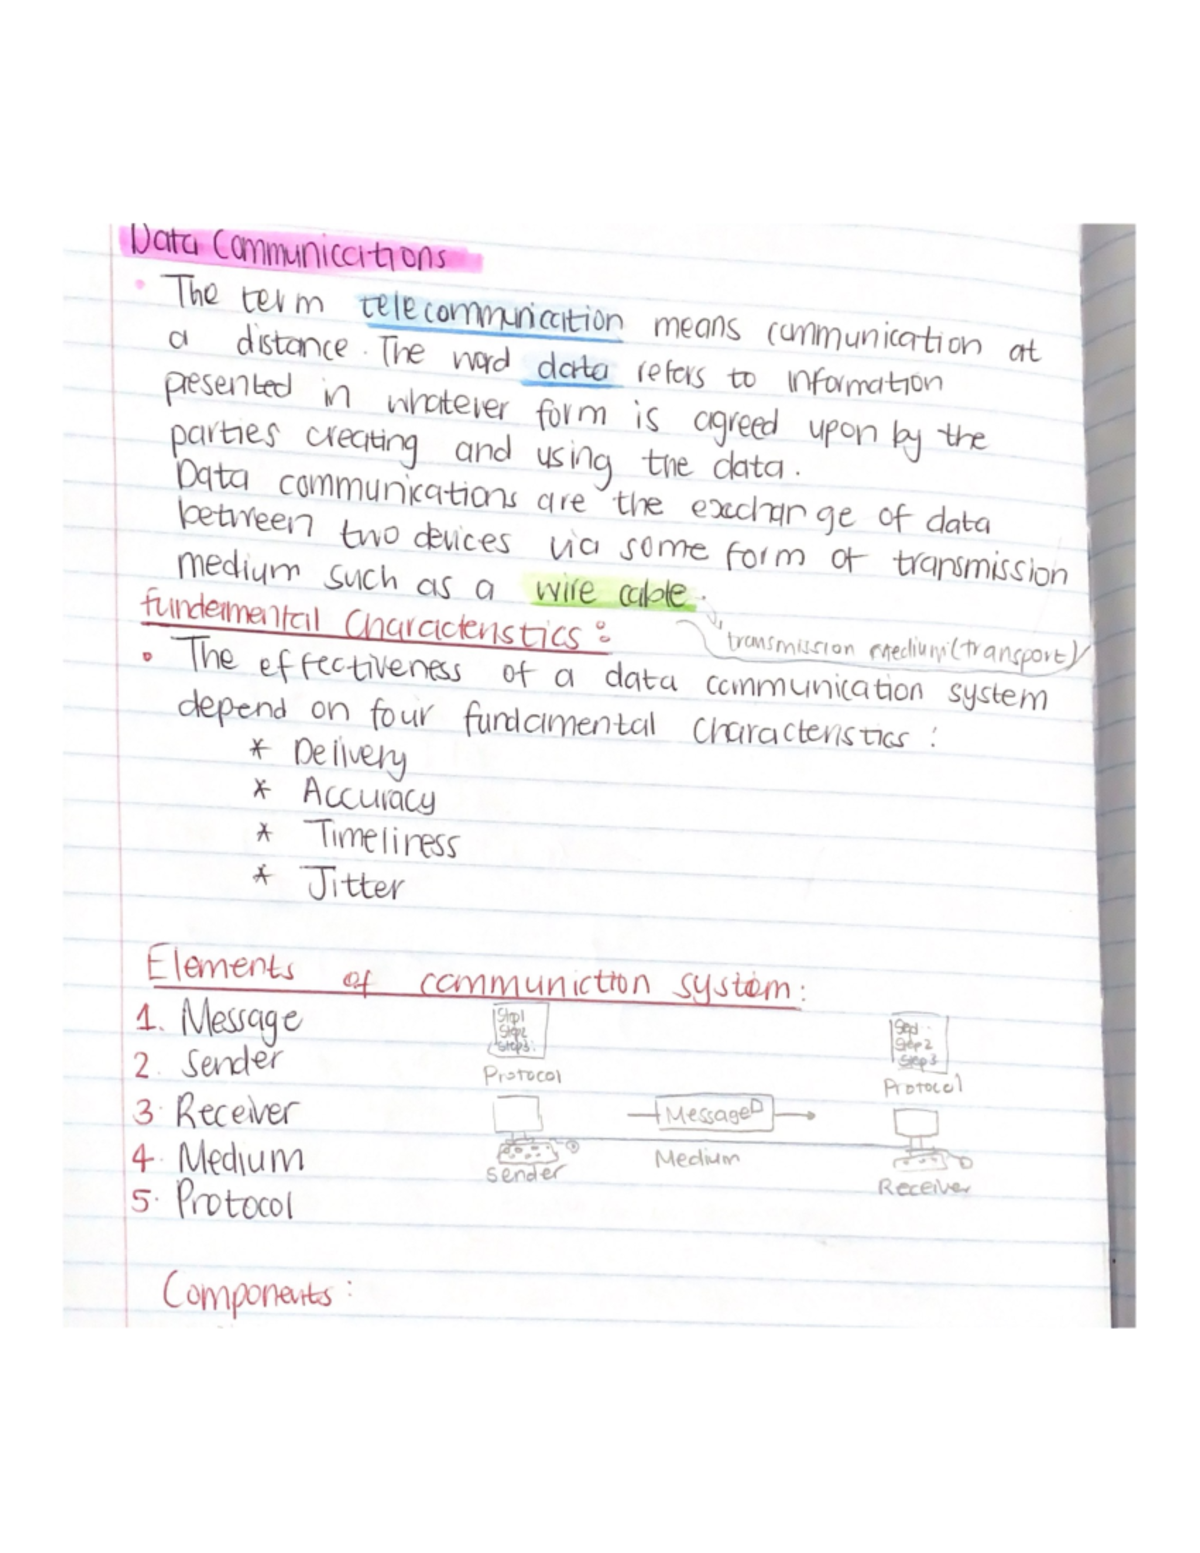 Data Communications
• The term telecommunication means communication at
a distance. The word data refers to information
presented in whatever form is agreed upon by the
parties creating and using the data.
Data communications are the exchange of data
between two devices via some form of transmission
medium such as a wire cable.
transmission medium (transport)
fundamental Characteristics:
• The effectiveness of a data communication system
depend on four fundamental characteristics:
* Delivery
* Accuracy
* Timeliness
* Jitter
Elements of communiction system:
1. Message
2. Sender
3. Receiver
4. Medium
5. Protocol
Step1
Step2
Step3:
Protocol
Step 2
Step3
Protocol
Message
Sender
Medium
Receiver
Components: